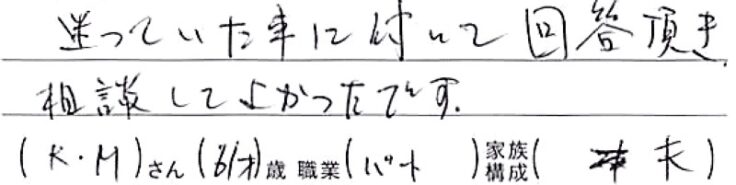 迷っていた事に付いて回答頂き
相談してよかったです.
(K・M)さん(61才)歳 職業(パート)家族構成(夫)